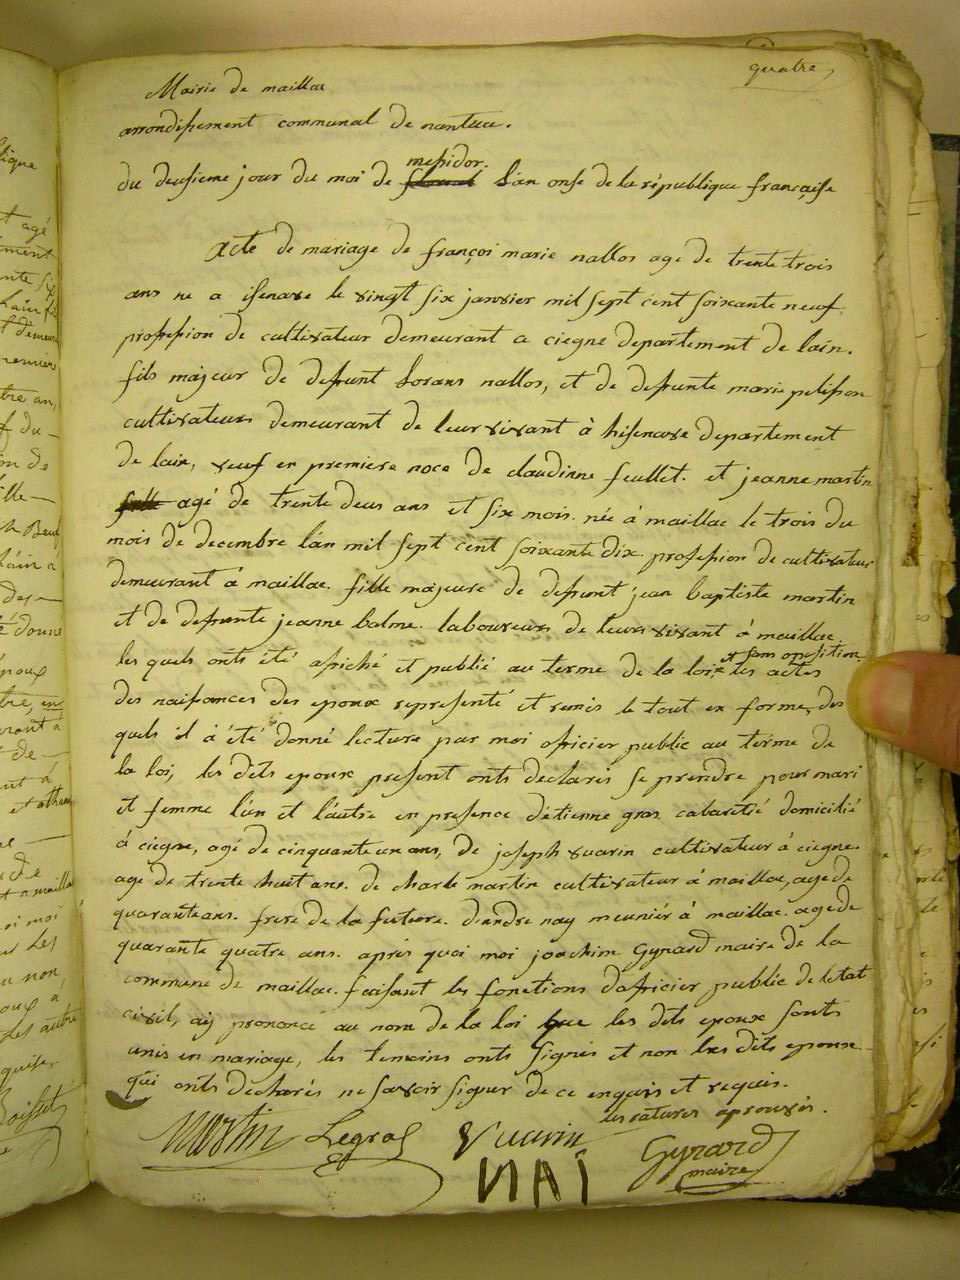 quatre
Mairie de maillac
arrondissement communal de nantua.
du deusieme jour du moi de messidor. l'an onse de la république française
Acte de mariage de françoi marie nallos age de trente trois
ans ne a isenave le vingt six janvier mil sept cent soixante neuf
profession de cultivateur demeurant a ciegne departement de lain.
fils majeur de defunt Lorans nallos, et de defunte marie pelisson
cultivateurs demeurant de leur vivant à hisenave departement
de lain, veuf en premiere noce de claudinne feuillet. et jeanne martin
fille agé de trente deus ans et six mois. née à maillac le trois du
mois de decembre lan mil sept cent soixante dix. profession de cultivateur
demeurant à maillac. fille majeure de defunt jean baptiste martin
et de defunte jeanne balme. laboureurs de leurs vivant à maillac.
les quels onts été afiché et publié au terme de la loix et sans oposition les actes
des naissances des epoux representé et remis le tout en forme, des
quels il à été donné lecture par moi oficier public au terme de
la loi, les dits epoux present onts declarés se prendre pour mari
et femme l'un et l'autre en presence d'étienne gras cabaretié domicilié
à ciegne, agé de cinquante un ans, de joseph vuarin cultivateur à ciegne.
age de trente huit ans. de charle martin cultivateur à maillac, age de
quarante ans. frere de la future. d'andre nay meuniér à maillac. age de
quarante quatre ans. aprés quoi moi joachim Gynard maire de la
commune de maillac. faisant les fonctions d'oficier public de letat
civil, aÿ prononcé au nom de la loi que les dits epoux sonts
unis en mariage, les temoins onts signés et non les dits epoux
qui onts declarés ne savoir signer de ce enquis et requis.
les ratures aprouvés.
Martin Legras Vuarin Gynard
NAI maire